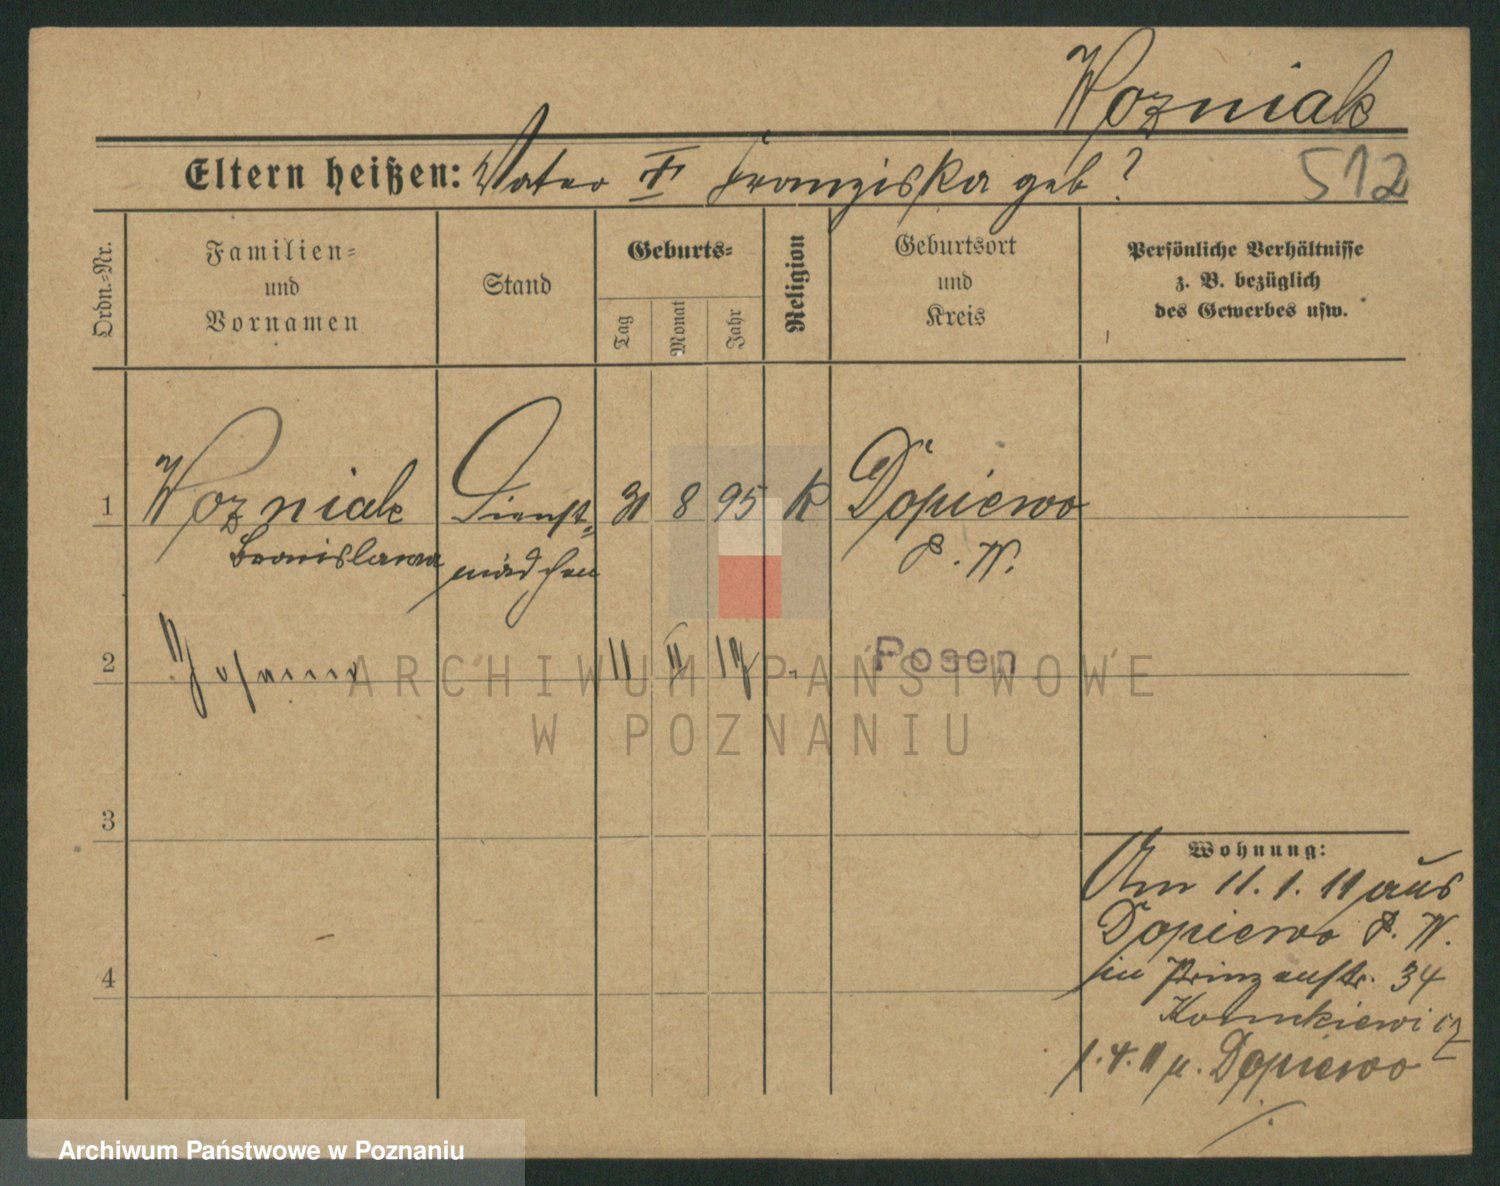 Wozniak
Eltern heißen: Vater † Franziska geb ?
512
Ordn.-Nr.
Familien-
und
Vornamen
Stand
Geburts-
Tag
Monat
Jahr
Religion
Geburtsort
und
Kreis
Persönliche Verhältnisse
z. B. bezüglich
des Gewerbes usw.
1 Wozniak Dienst- 31 8 95 K Dopiewo
Bronislawa mädchen P. W.
2 Johanna 11 II 17 " Posen
ARCHIWUM PAŃSTWOWE
W POZNANIU
3
Wohnung:
Am 11. 1. 11 aus
Dopiewo P. W.
in Prinzenstr. 34
4
1. 4. 11 n. Dopiewo
Archiwum Państwowe w Poznaniu